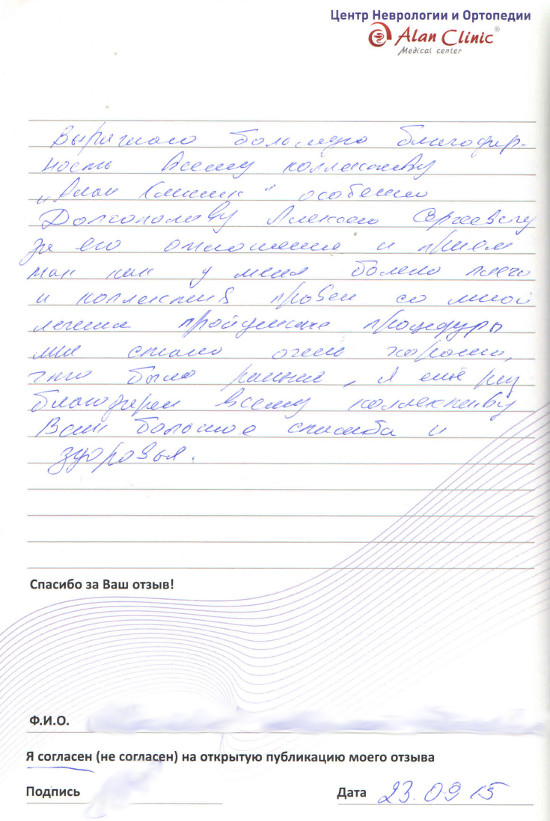 Центр Неврологии и Ортопедии
Alan Clinic®
Medical center
Выражаю большую благодар-
ность всему коллективу
„Алан Клиник" особенно
Алексею Сергеевичу
за его отношение и прием
так как у меня болело плечо
и коллектив провел со мной
лечение процедуры
мне стало очень хорошо,
было, я ещё раз
благодарен всему коллективу
Всем большое спасибо и
здоровья.
Спасибо за Ваш отзыв!
Ф.И.О.
Я согласен (не согласен) на открытую публикацию моего отзыва
Подпись
Дата 23.09 15